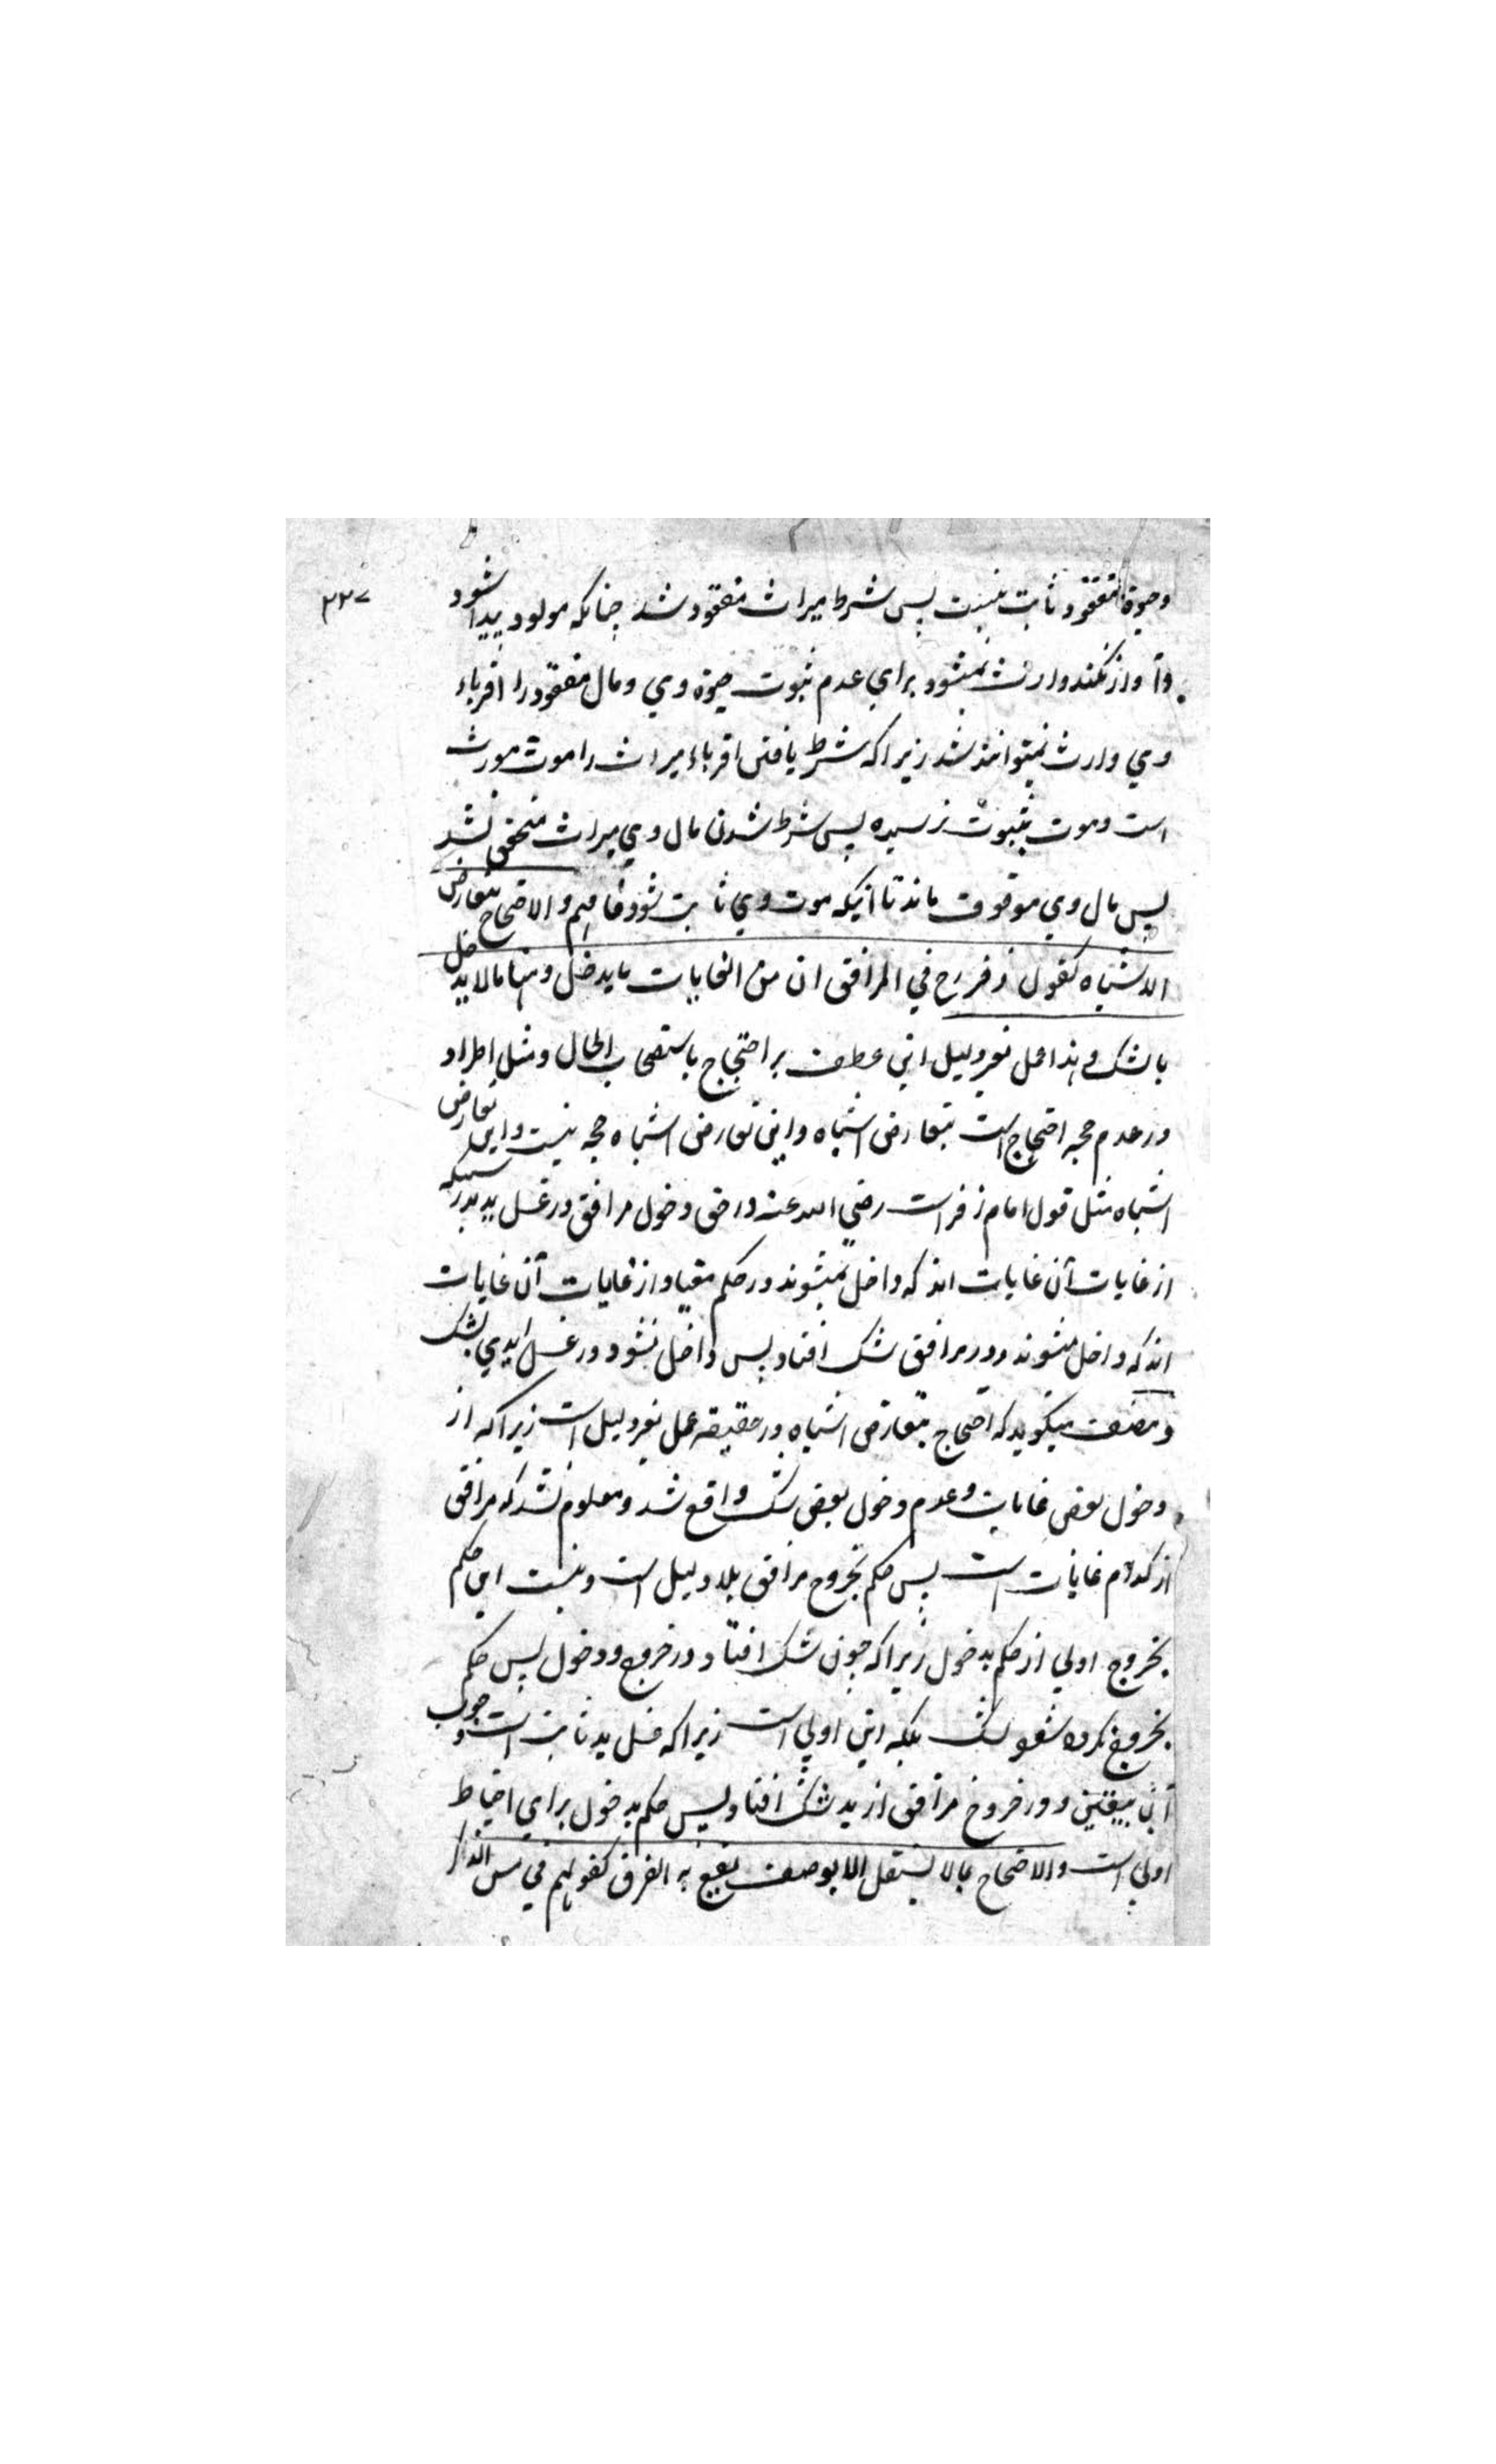 وحیوة مفقود ثابت نیست پس شرط میراث مفقود شد چنانکه مولود پیدا شود
۳۳۷
وآواز نکند وارث نمیشود برای عدم ثبوت حیوة وی ومال مفقود را اقرباء
وی وارث نمیتوانند شد زیرا که شرط یافتن اقرباء میراث را موت مورث
است وموت بثبوت نرسیده پس شرط شدن مال وی میراث متحقق نشد
پس مال وی موقوف ماند تا آنیکه موت وی ثابت شود فافهم والاحتجاج بتعارض
الاشباه کقول زفر رح في المرافق ان من الغایات ما یدخل ومنها مالا یدخل
بالشك وهذا عمل بغیر دلیل این عطف بر احتجاج باستصحاب الحال ومثل اطراد
در عدم حجه احتجاج است بتعارض اشباه واین تعارض اشباه حجه نیست واین تعارض
اشباه مثل قول امام زفر است رضي الله عنه در حق دخول مرافق در غسل ید بدرستیکه
از غایات آن غایات اند که داخل نمیشوند در حکم مغیا واز غایات آن غایات
اند که داخل میشوند ودر مرافق شك افتاد پس داخل نشود در غسل ایدی بشك
ومصنف میگوید که احتجاج بتعارض اشباه در حقیقه عمل بغیر دلیل است زیرا که از
دخول بعض غایات وعدم دخول بعض شك واقع شد ومعلوم نشد که مرافق
از کدام غایات است پس حکم بخروج مرافق بلا دلیل است ونیست این حکم
بخروج اولی از حکم بدخول زیرا که چون شك افتاد در خروج ودخول پس حکم
بخروج نکرده شود بشك بلکه این اولی است زیرا که غسل ید ثابت است وجوب
آن بیقین ودر خروج مرافق از ید شك افتاد پس حکم بدخول برای احتیاط
اولی است والاحتجاج بما لا یستقل الا بوصف یقع به الفرق کقولهم في مس الذکر